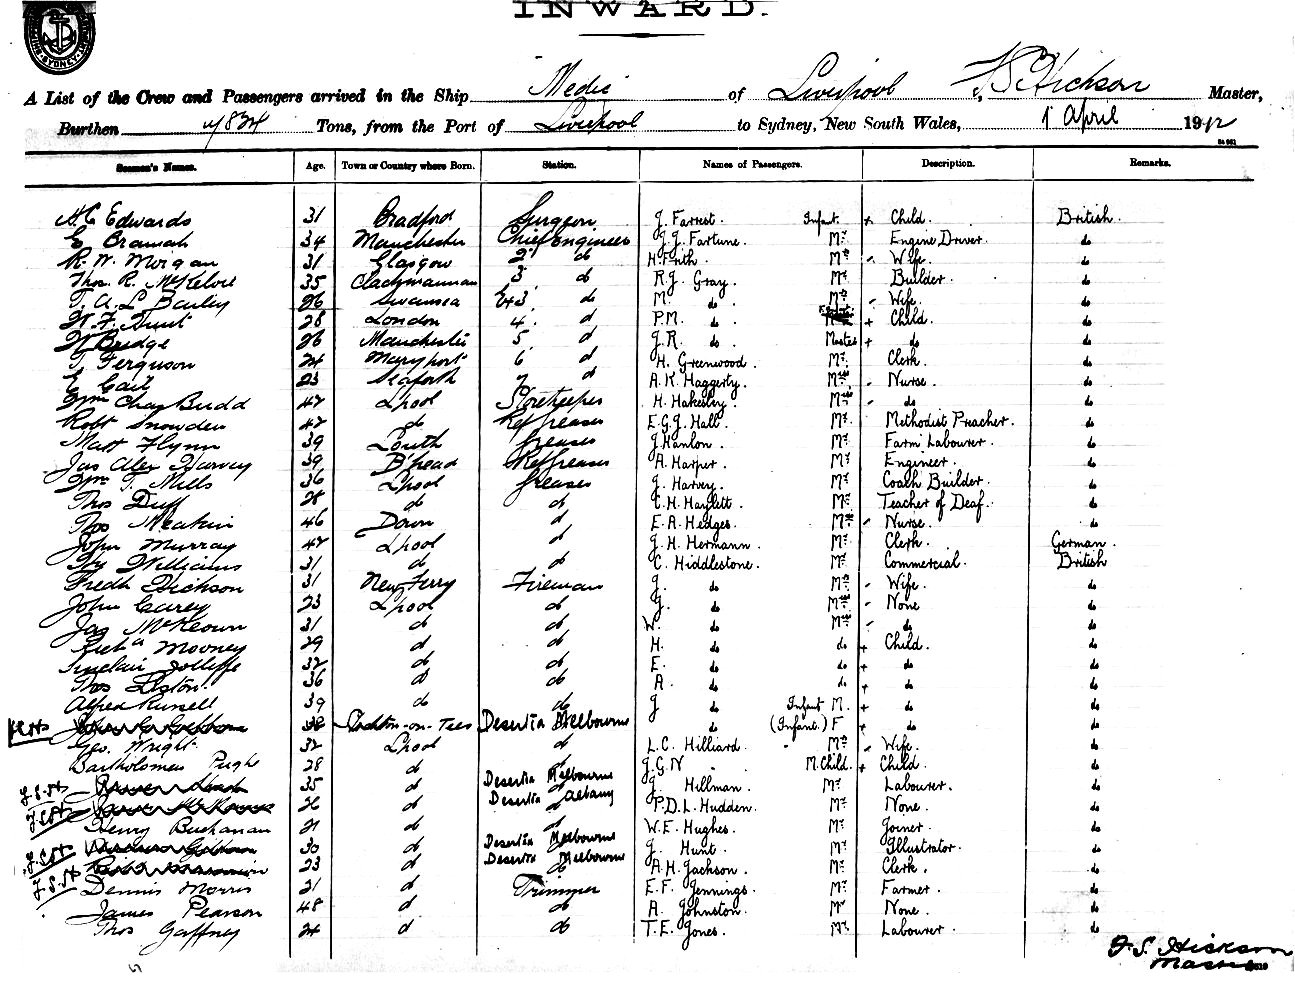 INWARD.
SYDNEY
A List of the Crew and Passengers arrived in the Ship Medic of Liverpool F S Hickson Master,
Burthen Tons, from the Port of Liverpool to Sydney, New South Wales, 1 April 1912
Seamen's Names. Age. Town or Country where Born. Station. Names of Passengers. Description. Remarks.
H.C Edwards 31 Bradford Surgeon J. Farrest. Infant + Child. British.
E 34 Manchester Chief Engineer J.J. Fortune. Mr Engine Driver. do
R. W. Morgan 31 Glasgow 2 d H. Frith. Mrs Wife. do
Thos. R. McKelvie 35 Clackmannan 3 d R.J. Gray. Mr Builder. do
T. A. L. Bailey 26 Swansea d M. do Mrs Wife. do
28 London 4. d P.M. do + Child. do
W Bridge 26 Manchester 5 d J.R. do Master + do do
T. Ferguson 24 Maryport 6 d H. Greenwood. Mr Clerk. do
E 23 Seaforth 7 d A. K. Haggerty. Nurse. do
Wm Chas Budd 42 L'pool Storekeeper H. Hakesley. do do
Robt Snowden 42 do E.G.J. Hall. Mr Methodist Preacher. do
Matt Flynn 39 Louth Greaser J. Hanlon. Mr Farm Labourer. do
Jas Alex Harvey 39 B'head A. Harper. Mr Engineer. do
Wm T. Mills 36 L'pool Greaser J. Harvey. Mr Coach Builder. do
Thos Duff 28 do do C. H. Haylett. Mr Teacher of Deaf. do
Thos Meakin 46 Down d E. A. Hedges. Nurse. do
John Murray 42 L'pool d J. H. Hermann. Mr Clerk. German.
Hy Williams 31 d d C. Hiddlestone. Mr Commercial. British
Fredk Dickson 31 New Ferry Fireman J. do Mrs Wife. do
John Carey 23 L'pool do J. do None do
Jas McKeown 31 d do W. do do do
Mooney 29 d d H. do do + Child. do
Sinclair Jolliffe 32 d do E. do do + do do
Thos Liston. 36 d do A. do do + do do
Alfred Russell 39 do do J do Infant M. + do do
38 Stockton-on-Tees Deserted Melbourne do (Infant.) F + do do
Geo. Wright. 32 L'pool d L.C. Hilliard. Mrs Wife. do
Bartholomew Pugh 28 d do J.G.N do M. Child. + Child. do
35 d Deserted Melbourne J. Hillman. Mr Labourer. do
26 d Deserted Albany P.D.L. Hudden. Mr None. do
Henry Buchanan 21 d do W.E. Hughes. Mr Joiner. do
30 d Deserted Melbourne J. Hunt. Mr Illustrator. do
23 d Deserted Melbourne A.H. Jackson. Mr Clerk. do
Dennis Morris 21 d Trimmer E.F. Jennings. Mr Farmer. do
James Pearson 48 d do A. Johnston. Mr None. do
Thos Gaffney 24 d do T.E. Jones. Mr Labourer. do
F. S. Hickson
Master